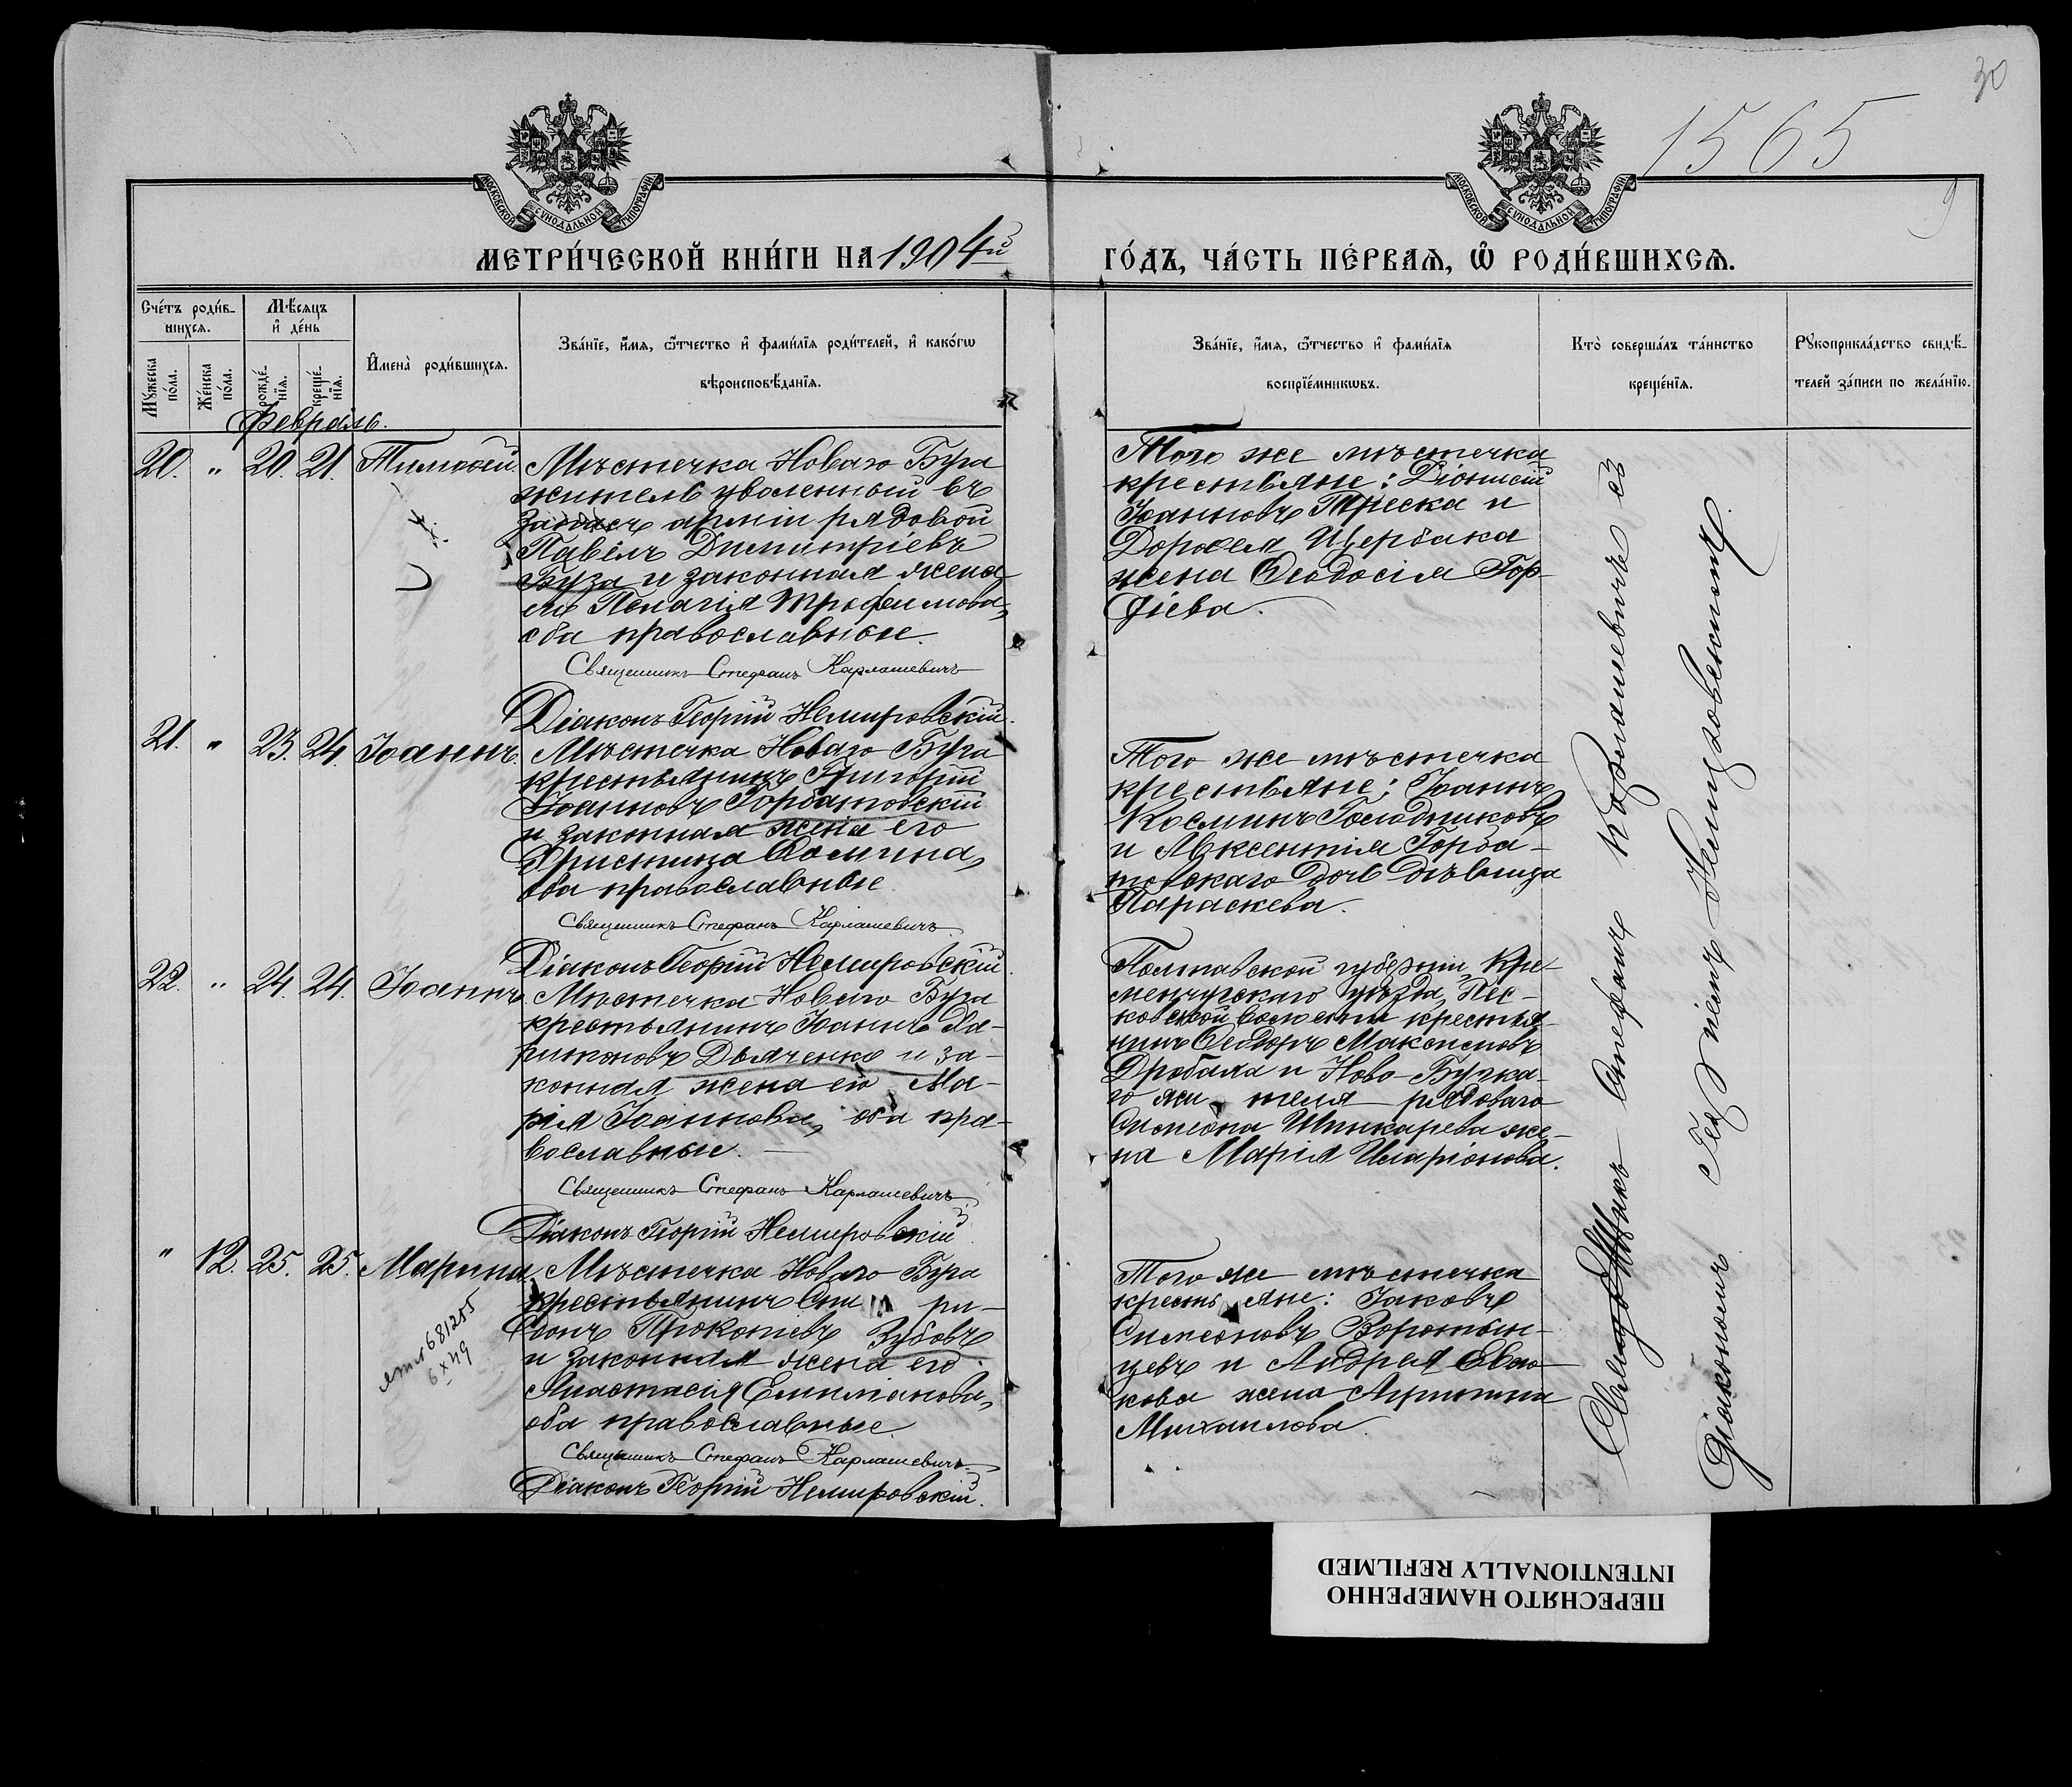 30
1565
9
МОСКОВСКОЙ СѴНОДАЛЬНОЙ ТИПОГРАФІИ
МОСКОВСКОЙ СѴНОДАЛЬНОЙ ТИПОГРАФІИ
МЕТРИ́ЧЕСКОЙ КНИ́ГИ НА 1904й
ГО́ДЪ, ЧА́СТЬ ПЕ́РВАѦ, Ѽ РОДИ́ВШИХСѦ.
Сче́тъ роди́в-
шихсѧ.
Мꙋ́жеска по́ла.
Же́нска по́ла.
Мѣ́сѧцъ
и҆ де́нь
рожде́-
нїѧ.
креще́-
нїѧ.
И҆мена̀ роди́вшихсѧ.
Зва́нїе, и҆́мѧ, ѻ҆́тчество и҆ фами́лїѧ роди́телей, и҆ како́гѡ
вѣроисповѣ́данїѧ.
Зва́нїе, и҆́мѧ, ѻ҆́тчество и҆ фами́лїѧ
воспрїе́мникѡвъ.
Кто̀ соверша́лъ та́инство
креще́нїѧ.
Рꙋкоприкла́дство свидѣ́-
телей за́писи по жела́нїю.
Февраль.
20. " 20. 21. Тимоѳей.
Мѣстечка Новаго Буга
житель уволенный въ
запасъ арміи рядовой
Павелъ Димитріевъ
Буза и законная жена
его Пелагія Трофимова,
оба православные.
Священникъ Стефанъ Карлашевичъ
Діаконъ Георгій Немировскій.
Того же мѣстечка
крестьяне: Діонисій
Іоанновъ Треска и
Дороѳея Щербака
жена Ѳеодосія Гор-
діева.
21. " 23. 24. Іоаннъ.
Мѣстечка Новаго Буга
крестьянинъ Григорій
Іоанновъ Горбатовскій
и законная жена его
Христина Ѳомина,
оба православные.
Священникъ Стефанъ Карлашевичъ.
Діаконъ Георгій Немировскій.
Того же мѣстечка
крестьяне: Іоаннъ
Косминъ Голодниковъ
и Авксентія Горба-
товскаго дочь дѣвица
Параскева.
22. " 24. 24. Іоаннъ.
Мѣстечка Новаго Буга
крестьянинъ Іоаннъ Ха-
ритоновъ Дьяченко и за-
конная жена его Ма-
рія Іоаннова, оба пра-
вославные.
Священникъ Стефанъ Карлашевичъ.
Діаконъ Георгій Немировскій.
Полтавской губерніи, Кре-
менчугскаго уѣзда, Пес-
ковской волости крестья-
нинъ Ѳеодоръ Максимовъ
Дробаха и Ново-Бугска-
го жителя рядоваго
Симеона Шинкарева же-
на Марія Иларіонова.
" 12. 25. 25. Марина.
Мѣстечка Новаго Буга
крестьянинъ Спири-
донъ Прокопіевъ Зубовъ
и законная жена его
Анастасія Емиліанова,
оба православные.
Священникъ Стефанъ Карлашевичъ.
Діаконъ Георгій Немировскій.
681255
Того же мѣстечка
крестьяне: Іаковъ
Симеоновъ Воротын-
цевъ и Андрея
жена
Михаилова.
Священникъ Стефанъ Карлашевичъ съ
Діакономъ Георгіемъ Немировскимъ.
ПЕРЕСНЯТО НАМЕРЕННО
INTENTIONALLY REFILMED